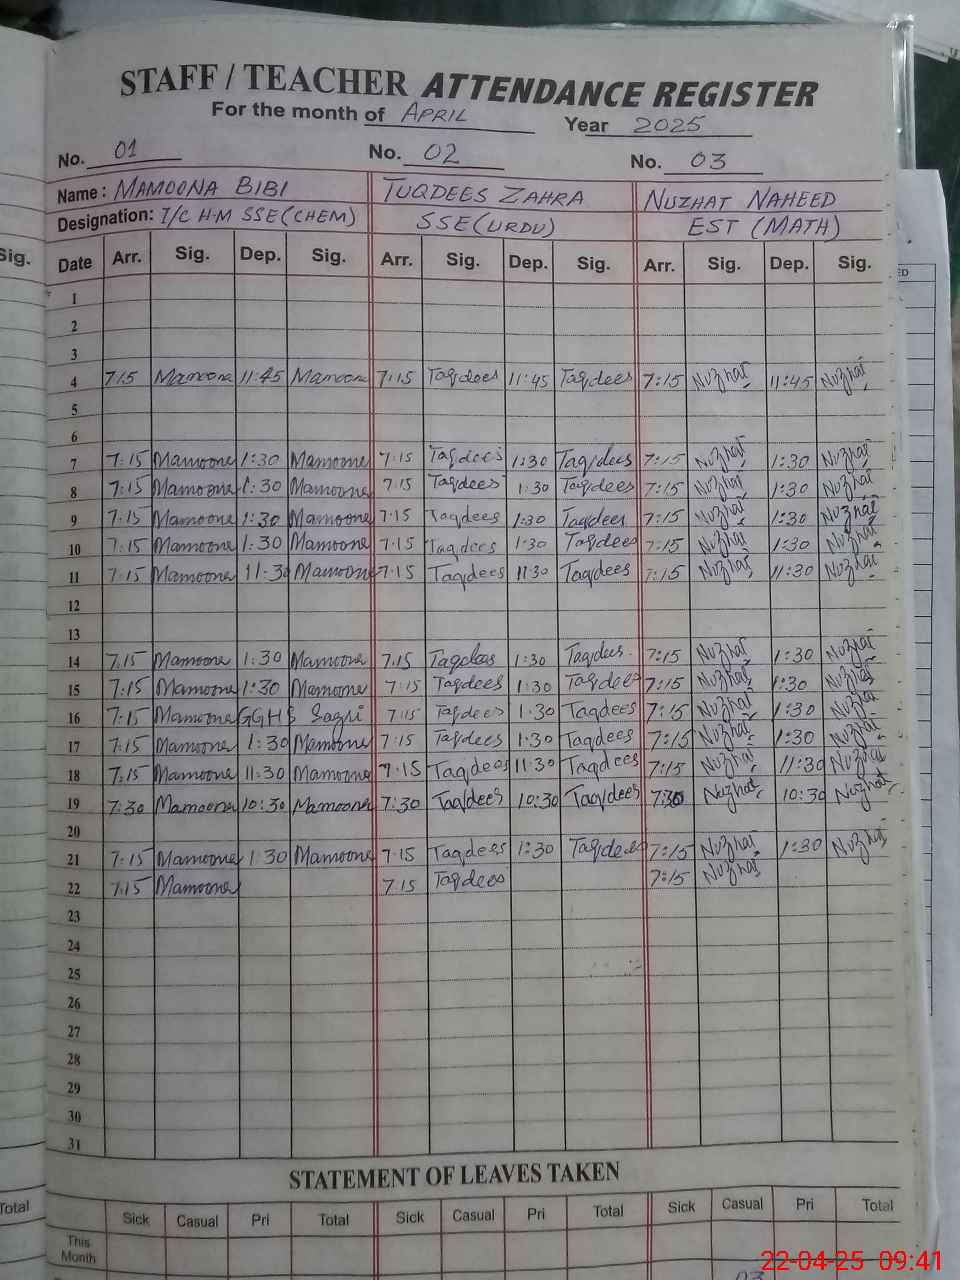 STAFF / TEACHER ATTENDANCE REGISTER
For the month of APRIL Year 2025
No. 01 No. 02 No. 03
Name : MAMOONA BIBI TUQDEES ZAHRA NUZHAT NAHEED
Designation: I/C H-M SSE(CHEM) SSE(URDU) EST (MATH)
Sig.
Date Arr. Sig. Dep. Sig. Arr. Sig. Dep. Sig. Arr. Sig. Dep. Sig.
1
2
3
4 7:15 Mamoona 11:45 Mamoona 7:15 Taqdees 11:45 Taqdees 7:15 Nuzhat 11:45 Nuzhat
5
6
7 7:15 Mamoona 1:30 Mamoona 7:15 Taqdees 1:30 Taqdees 7:15 Nuzhat 1:30 Nuzhat
8 7:15 Mamoona 1:30 Mamoona 7:15 Taqdees 1:30 Taqdees 7:15 Nuzhat 1:30 Nuzhat
9 7:15 Mamoona 1:30 Mamoona 7:15 Taqdees 1:30 Taqdees 7:15 Nuzhat 1:30 Nuzhat
10 7:15 Mamoona 1:30 Mamoona 7:15 Taqdees 1:30 Taqdees 7:15 Nuzhat 1:30 Nuzhat
11 7:15 Mamoona 11:30 Mamoona 7:15 Taqdees 11:30 Taqdees 7:15 Nuzhat 11:30 Nuzhat
12
13
14 7:15 Mamoona 1:30 Mamoona 7:15 Taqdees 1:30 Taqdees 7:15 Nuzhat 1:30 Nuzhat
15 7:15 Mamoona 1:30 Mamoona 7:15 Taqdees 1:30 Taqdees 7:15 Nuzhat 1:30 Nuzhat
16 7:15 Mamoona GGHS Sagri 7:15 Taqdees 1:30 Taqdees 7:15 Nuzhat 1:30 Nuzhat
17 7:15 Mamoona 1:30 Mamoona 7:15 Taqdees 1:30 Taqdees 7:15 Nuzhat 1:30 Nuzhat
18 7:15 Mamoona 11:30 Mamoona 7:15 Taqdees 11:30 Taqdees 7:15 Nuzhat 11:30 Nuzhat
19 7:30 Mamoona 10:30 Mamoona 7:30 Taqdees 10:30 Taqdees 7:30 Nuzhat 10:30 Nuzhat
20
21 7:15 Mamoona 1:30 Mamoona 7:15 Taqdees 1:30 Taqdees 7:15 Nuzhat 1:30 Nuzhat
22 7:15 Mamoona 7:15 Taqdees 7:15 Nuzhat
23
24
25
26
27
28
29
30
31
STATEMENT OF LEAVES TAKEN
Total
Sick Casual Pri Total Sick Casual Pri Total Sick Casual Pri Total
This Month
22-04-25 09:41